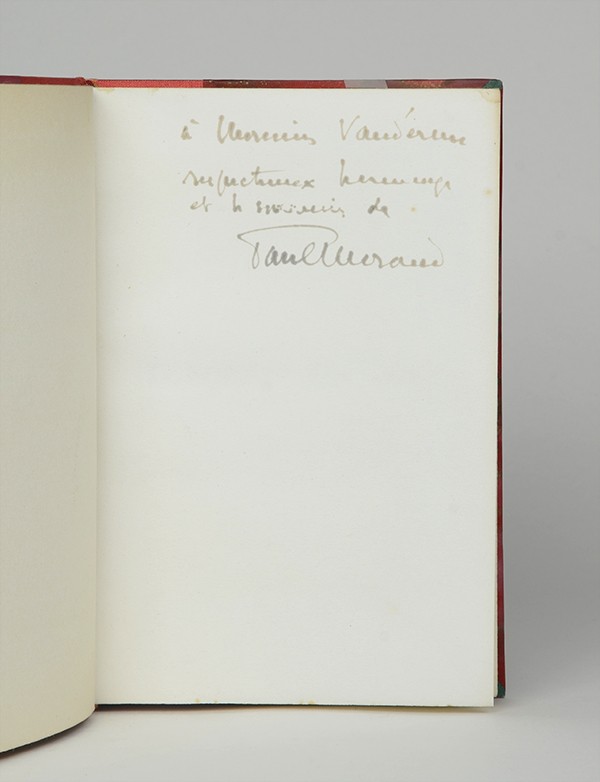 à Monsieur Vandérem
respectueux hommage
et le souvenir de
Paul Morand